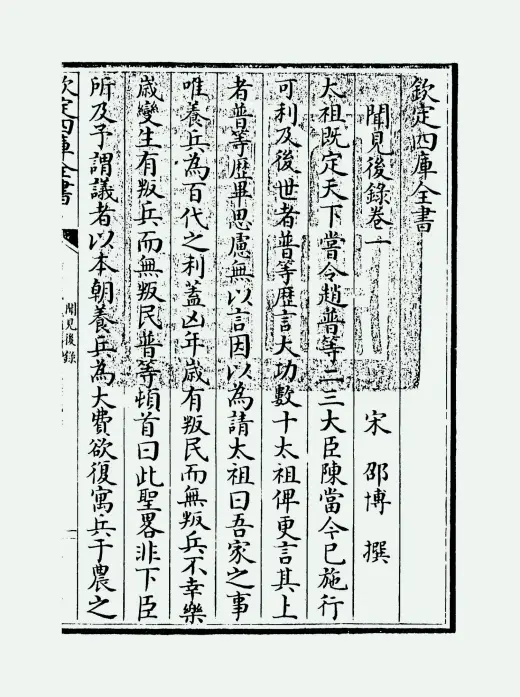 欽定四庫全書
聞見後錄卷一
宋 邵博 撰
太祖既定天下嘗令趙普等二三大臣陳當今已施行
可利及後世者普等歷言大功數十太祖俾更言其上
者普等歷畢思慮無以言因以為請太祖曰吾家之事
唯養兵為百代之利蓋凶年嵗有叛民而無叛兵不幸樂
嵗變生有叛兵而無叛民普等頓首曰此聖畧非下臣
所及予謂議者以本朝養兵為大費欲復寓兵于農之
欽定四庫全書
聞見後錄
一